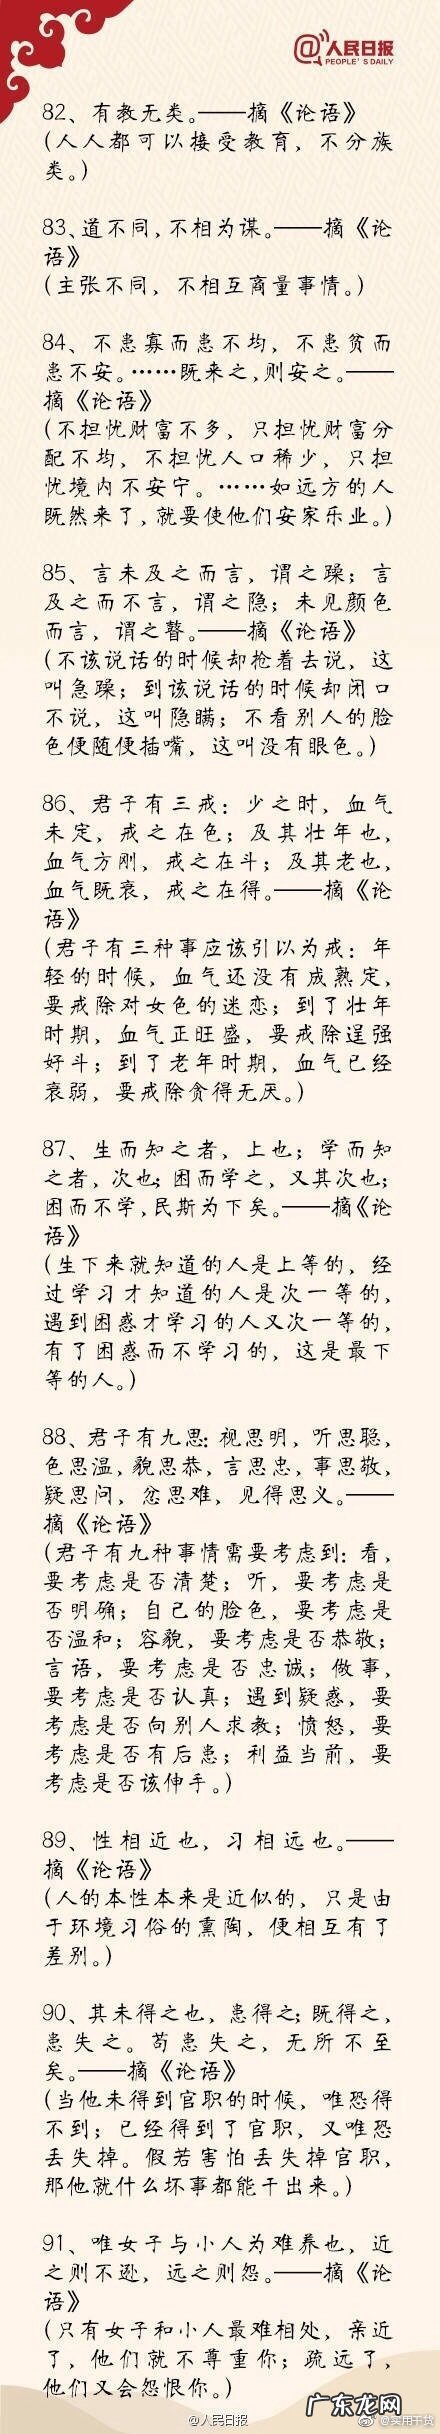 @人民日报
PEOPLE'S DAILY
82、有教无类。——摘《论语》
(人人都可以接受教育，不分族
类。)
83、道不同，不相为谋。——摘《论
语》
(主张不同，不相互商量事情。)
84、不患寡而患不均，不患贫而
患不安。……既来之，则安之。——
摘《论语》
(不担忧财富不多，只担忧财富分
配不均，不担忧人口稀少，只担
忧境内不安宁。……如远方的人
既然来了，就要使他们安家乐业。)
85、言未及之而言，谓之躁；言
及之而不言，谓之隐；未见颜色
而言，谓之瞽。——摘《论语》
(不该说话的时候却抢着去说，这
叫急躁；到该说话的时候却闭口
不说，这叫隐瞒；不看别人的脸
色便随便插嘴，这叫没有眼色。)
86、君子有三戒：少之时，血气
未定，戒之在色；及其壮年也，
血气方刚，戒之在斗；及其老也，
血气既衰，戒之在得。——摘《论
语》
(君子有三种事应该引以为戒：年
轻的时候，血气还没有成熟定，
要戒除对女色的迷恋；到了壮年
时期，血气正旺盛，要戒除逞强
好斗；到了老年时期，血气已经
衰弱，要戒除贪得无厌。)
87、生而知之者，上也；学而知
之者，次也；困而学之，又其次也；
困而不学，民斯为下矣。——摘《论
语》
(生下来就知道的人是上等的，经
过学习才知道的人是次一等的，
遇到困惑才学习的人又次一等的，
有了困惑而不学习的，这是最下
等的人。)
88、君子有九思：视思明，听思聪，
色思温，貌思恭，言思忠，事思敬，
疑思问，忿思难，见得思义。——
摘《论语》
(君子有九种事情需要考虑到：看，
要考虑是否清楚；听，要考虑是
否明确；自己的脸色，要考虑是
否温和；容貌，要考虑是否恭敬；
言语，要考虑是否忠诚；做事，
要考虑是否认真；遇到疑惑，要
考虑是否向别人求教；愤怒，要
考虑是否有后患；利益当前，要
考虑是否该伸手。)
89、性相近也，习相远也。——
摘《论语》
(人的本性本来是近似的，只是由
于环境习俗的熏陶，便相互有了
差别。)
90、其未得之也，患得之；既得之，
患失之。苟患失之，无所不至
矣。——摘《论语》
(当他未得到官职的时候，唯恐得
不到；已经得到了官职，又唯恐
丢失掉。假若害怕丢失掉官职，
那他就什么坏事都能干出来。)
91、唯女子与小人为难养也，近
之则不逊，远之则怨。——摘《论
语》
(只有女子和小人最难相处，亲近
了，他们就不尊重你；疏远了，
他们又会怨恨你。)
@人民日报
@实用干货
广东龙网